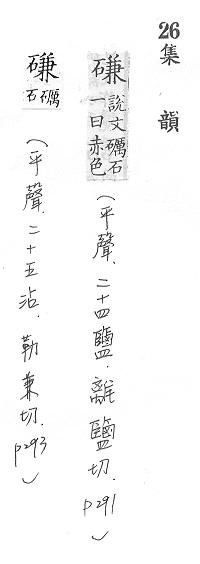 26
集韻
磏說文礪石一曰赤色(平聲.二十四鹽.離鹽切.P291)
磏礪石(平聲.二十五沾.勒兼切.P293)